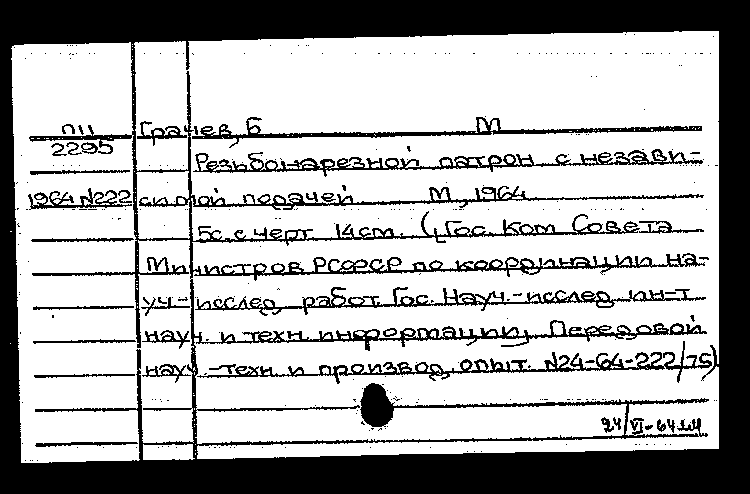 ПЦ Грачев, Б М
2295
Резьбонарезной патрон с незави-
1964 N222 симой подачей М, 1964
5с. с черт. 14см. (Гос. Ком Совета
Министров РСФСР по координации на-
уч-исслед. работ Гос. Науч.-исслед. ин-т
науч. и техн. информации. Передовой
науч.-техн. и производ. опыт. N24-64-222/75)
24/VI-64